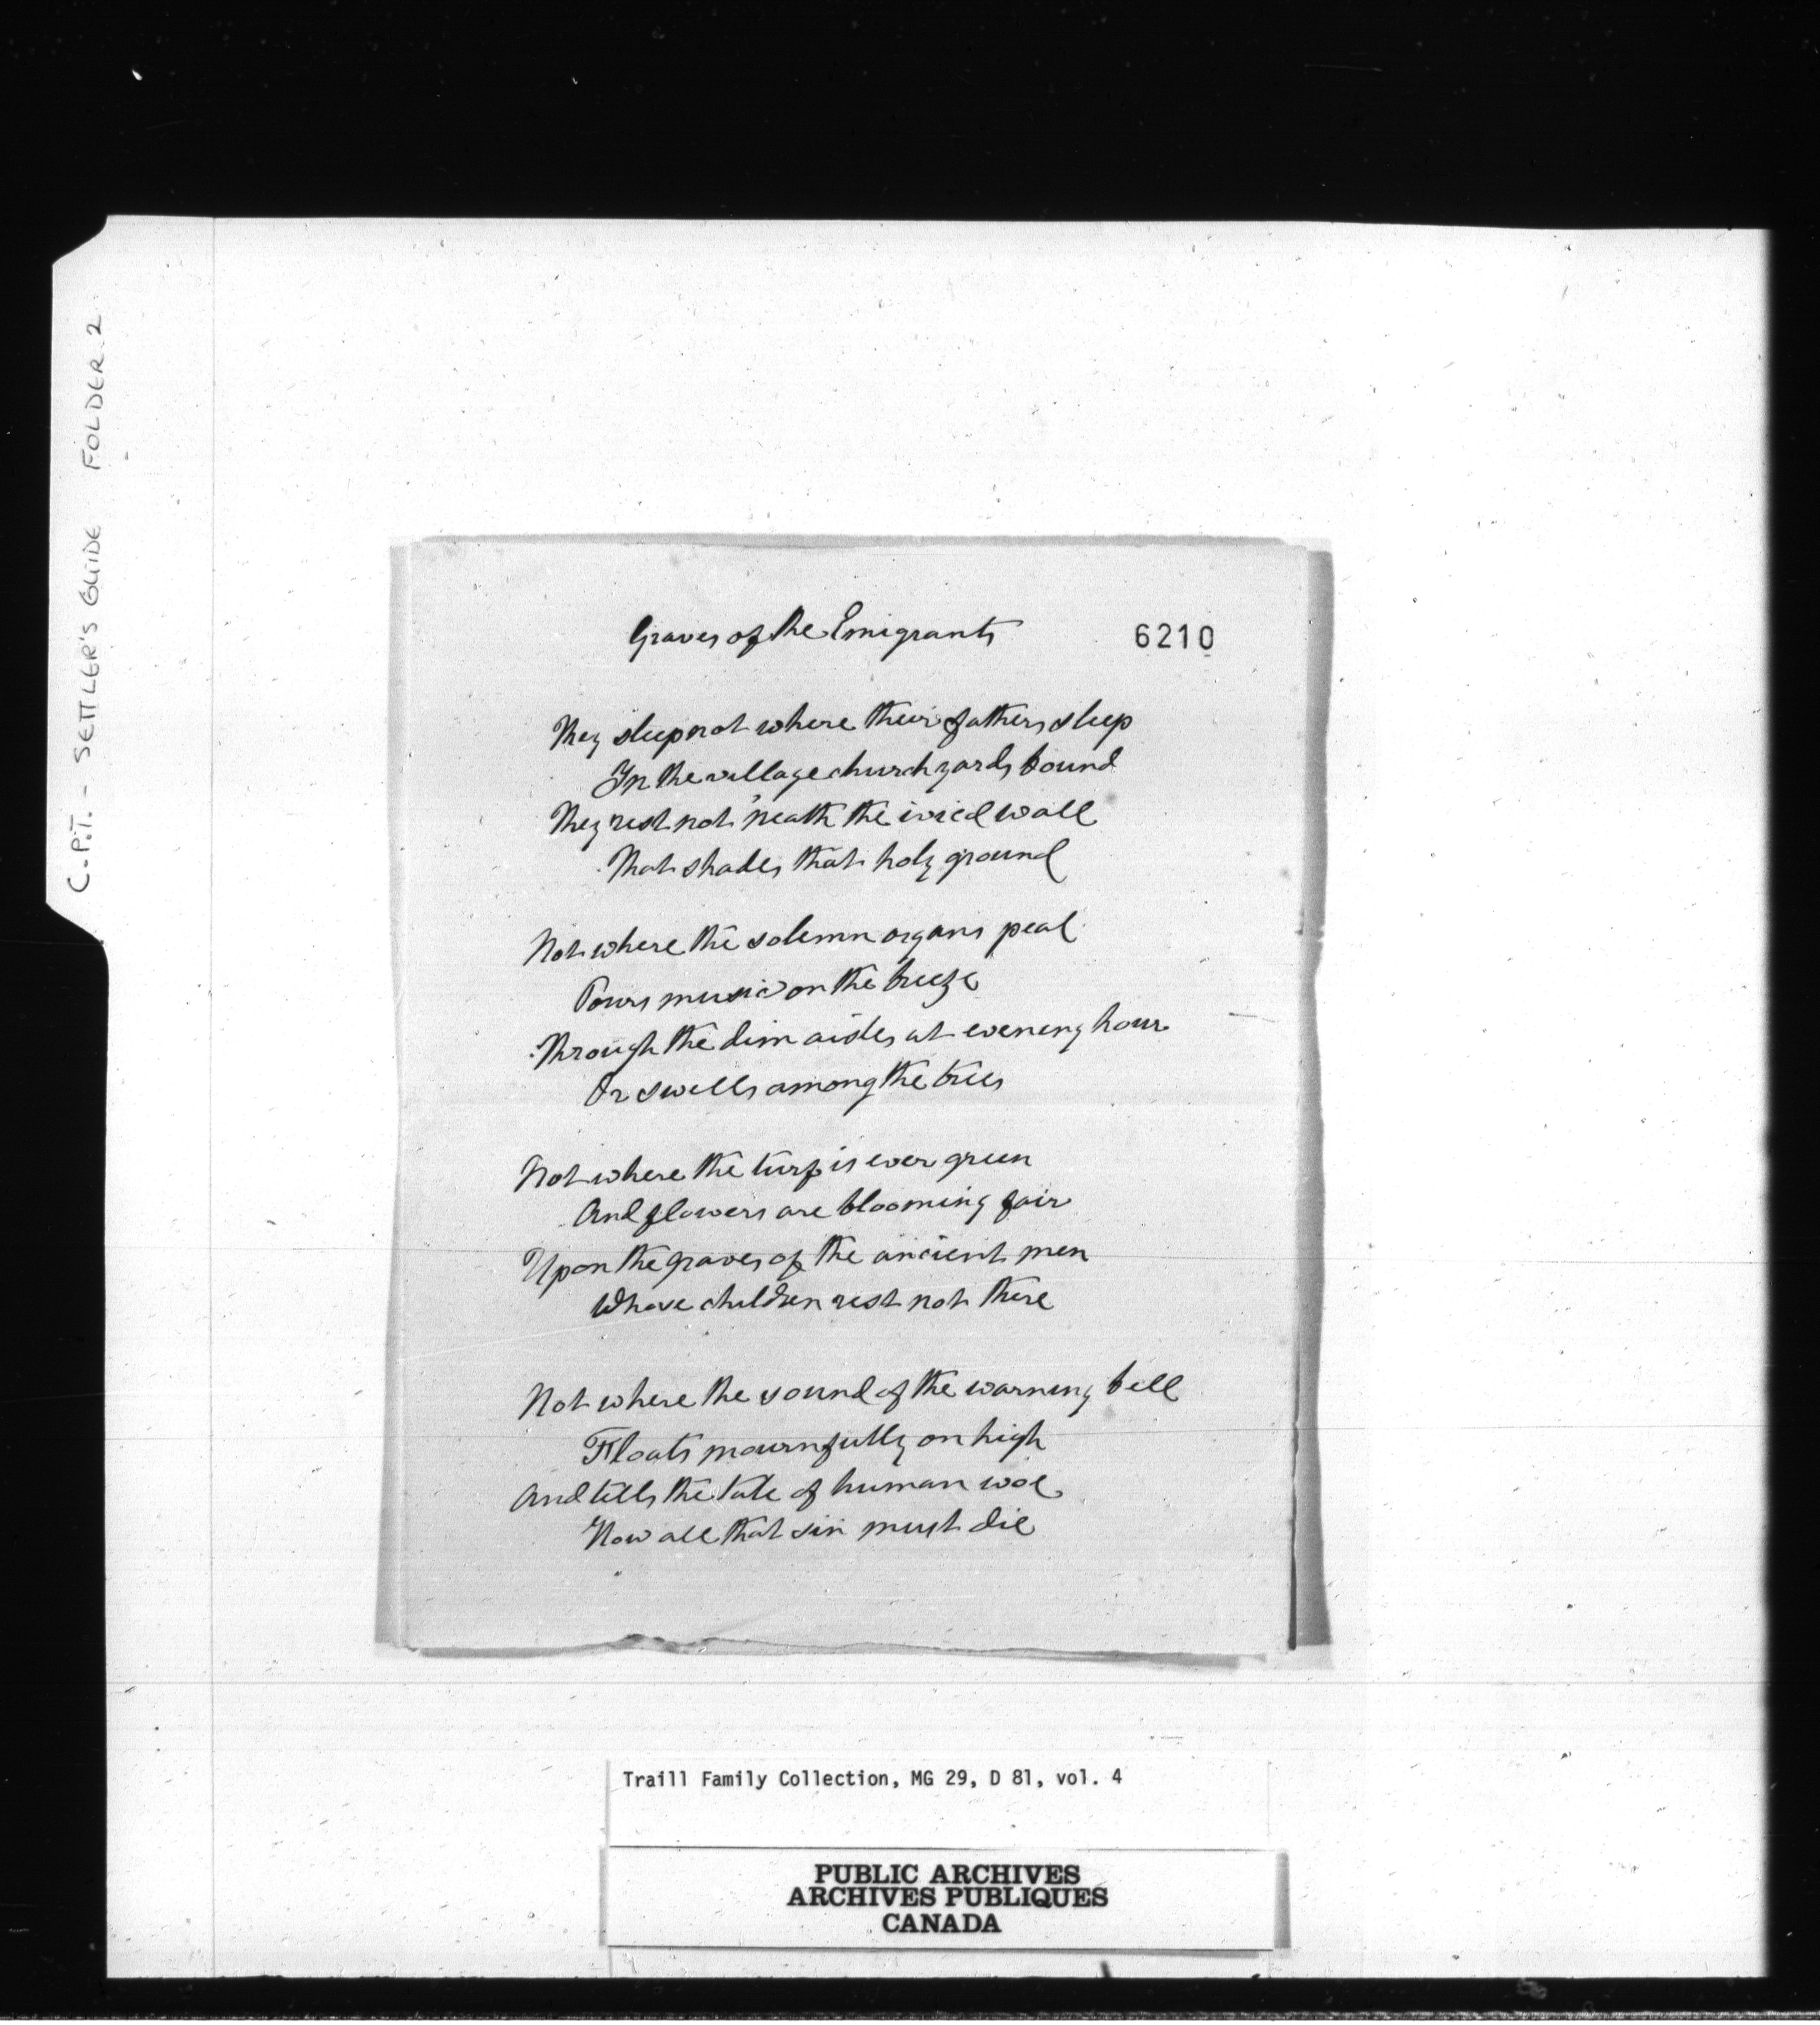 C.P.T. - SETTLER'S GUIDE FOLDER 2
Graves of the Emigrants
6210
They sleep not where their fathers sleep
In the village churchyards bound
They rest not 'neath the ivied wall
That shades that holy ground
Not where the solemn organs peal
Pours music on the breeze
Through the dim aisles at evening hour
Or swells among the trees
Not where the turf is ever green
And flowers are blooming fair
Upon the graves of the ancient men
Whose children rest not there
Not where the sound of the warning bell
Floats mournfully on high
And tells the tale of human woe
How all that sin must die
Traill Family Collection, MG 29, D 81, vol. 4
PUBLIC ARCHIVES
ARCHIVES PUBLIQUES
CANADA